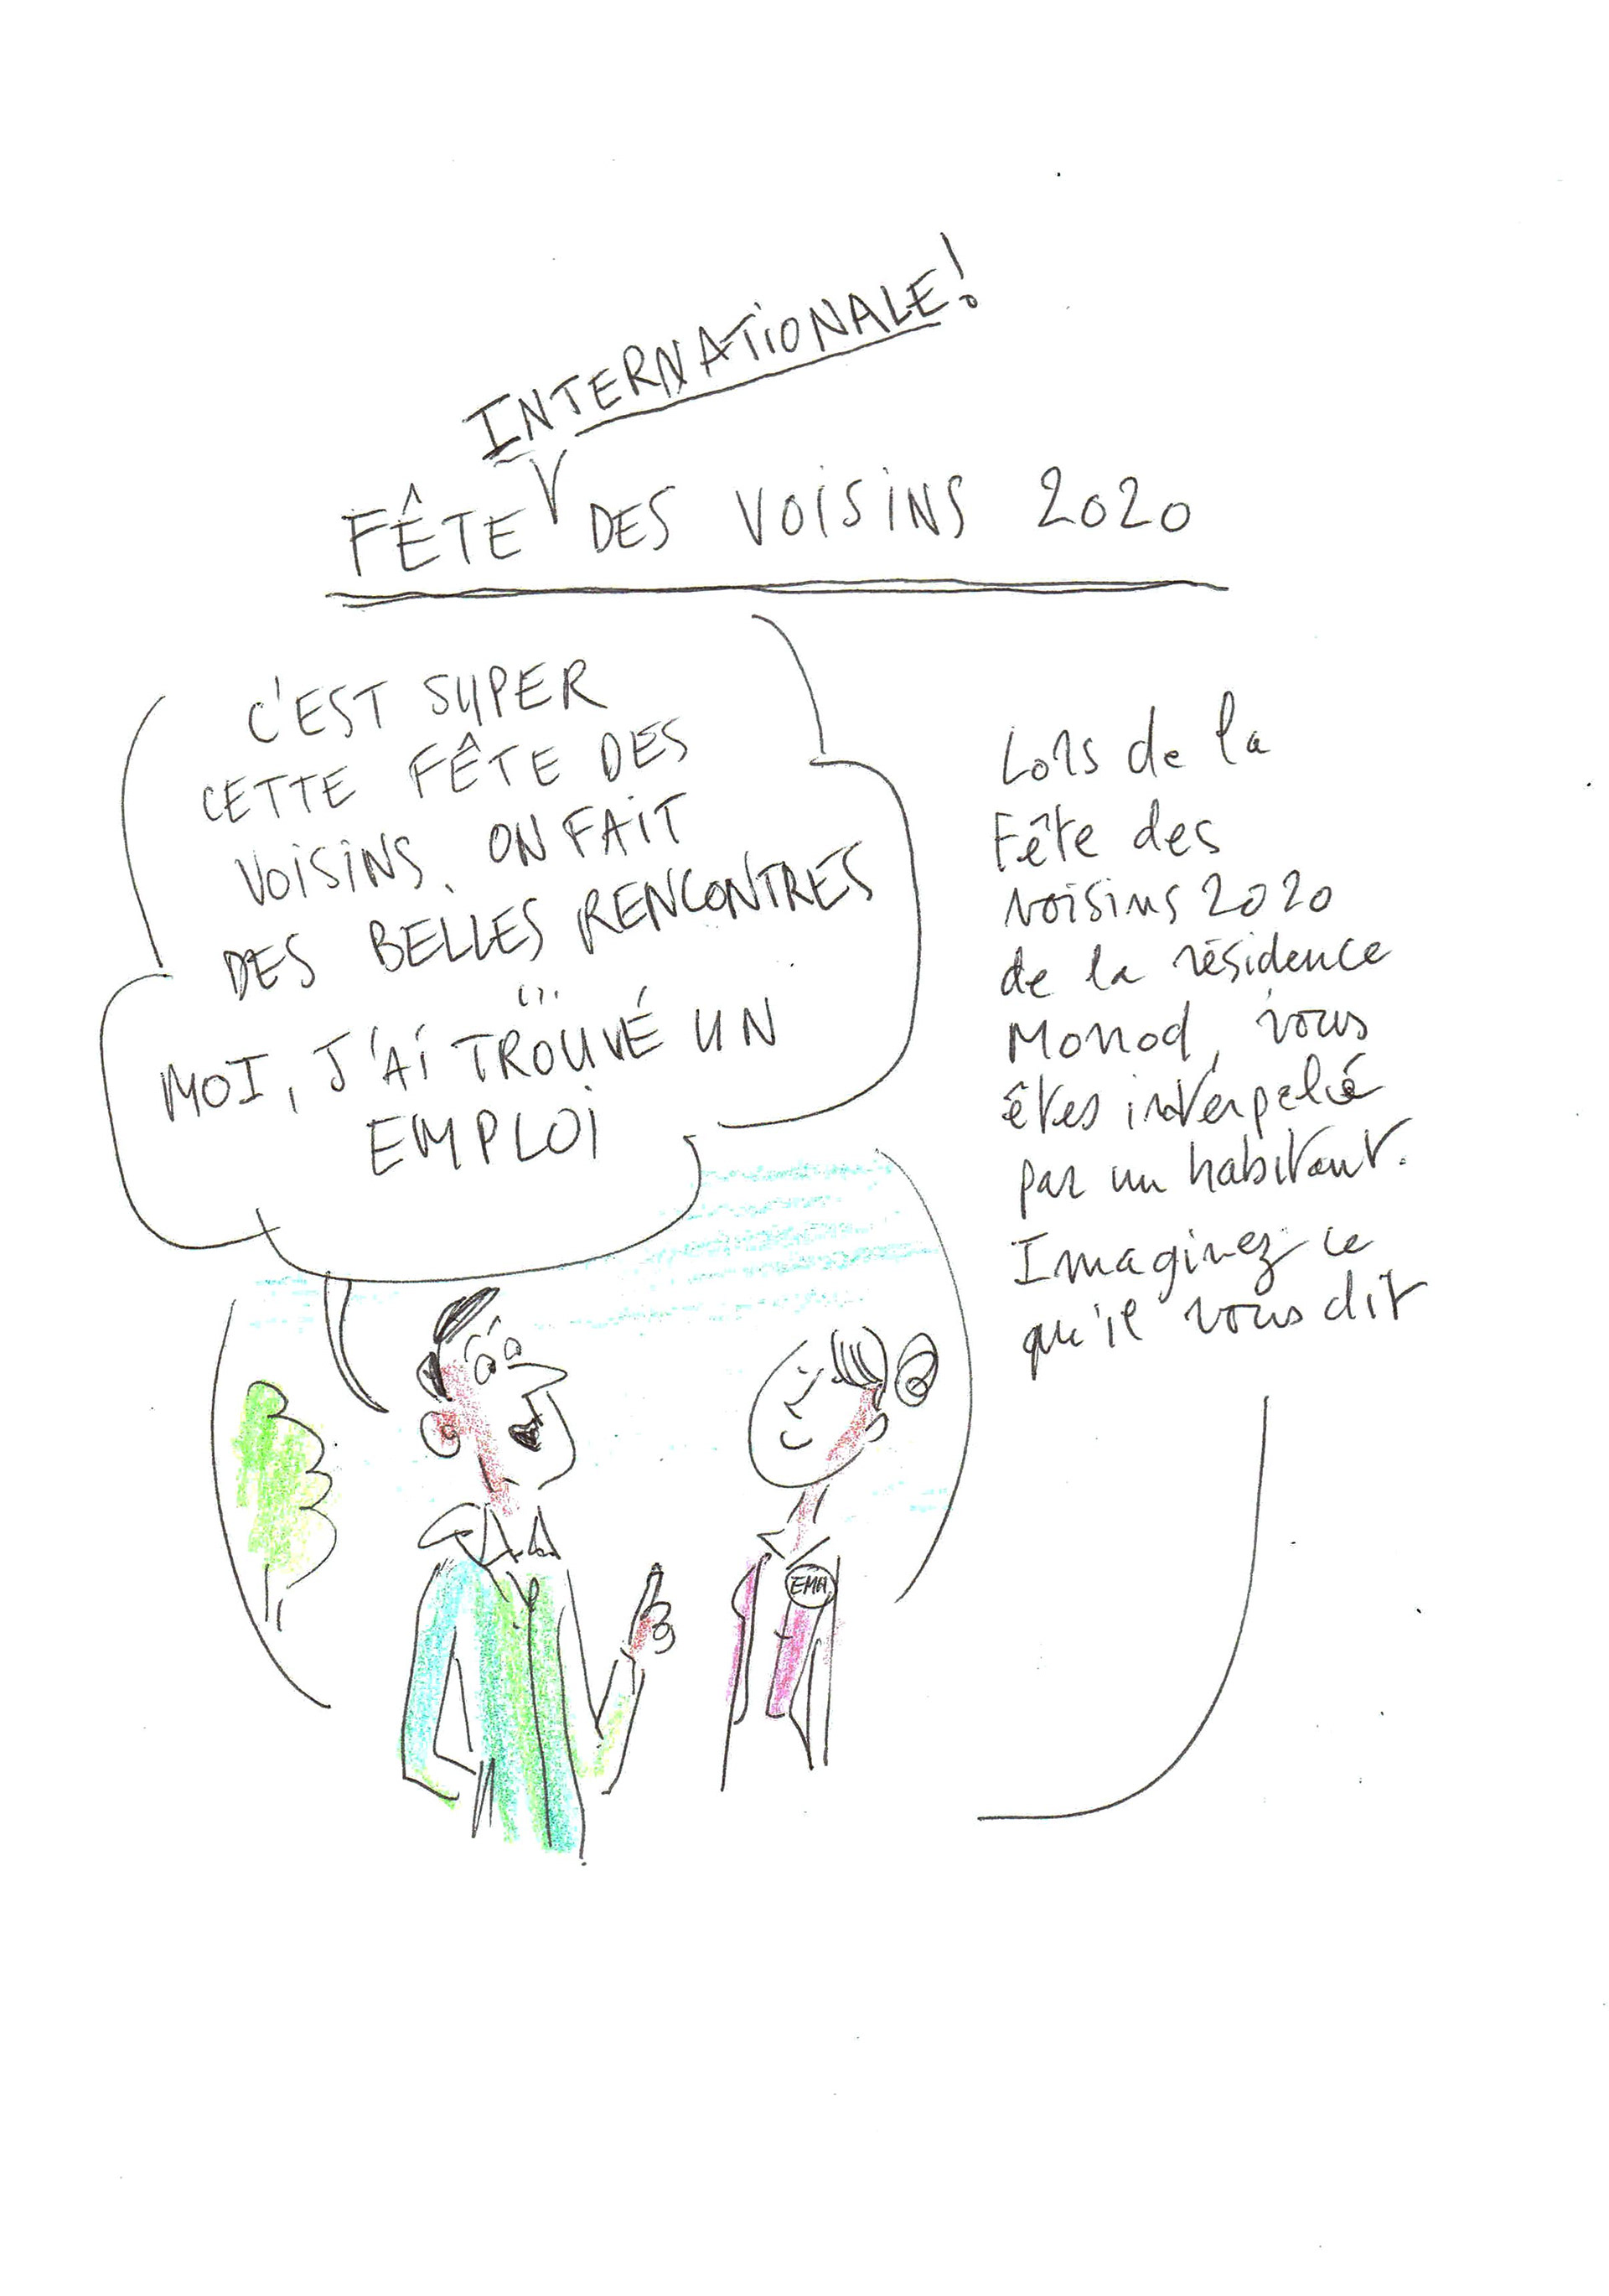 INTERNATIONALE!
FÊTE DES VOISINS 2020
C'EST SUPER
CETTE FÊTE DES
VOISINS. ON FAIT
DES BELLES RENCONTRES
...
MOI, J'AI TROUVÉ UN
EMPLOI
Lors de la
Fête des
voisins 2020
de la résidence
Monod, vous
êtes interpelé
par un habitant.
Imaginez ce
qu'il vous dit
EMH